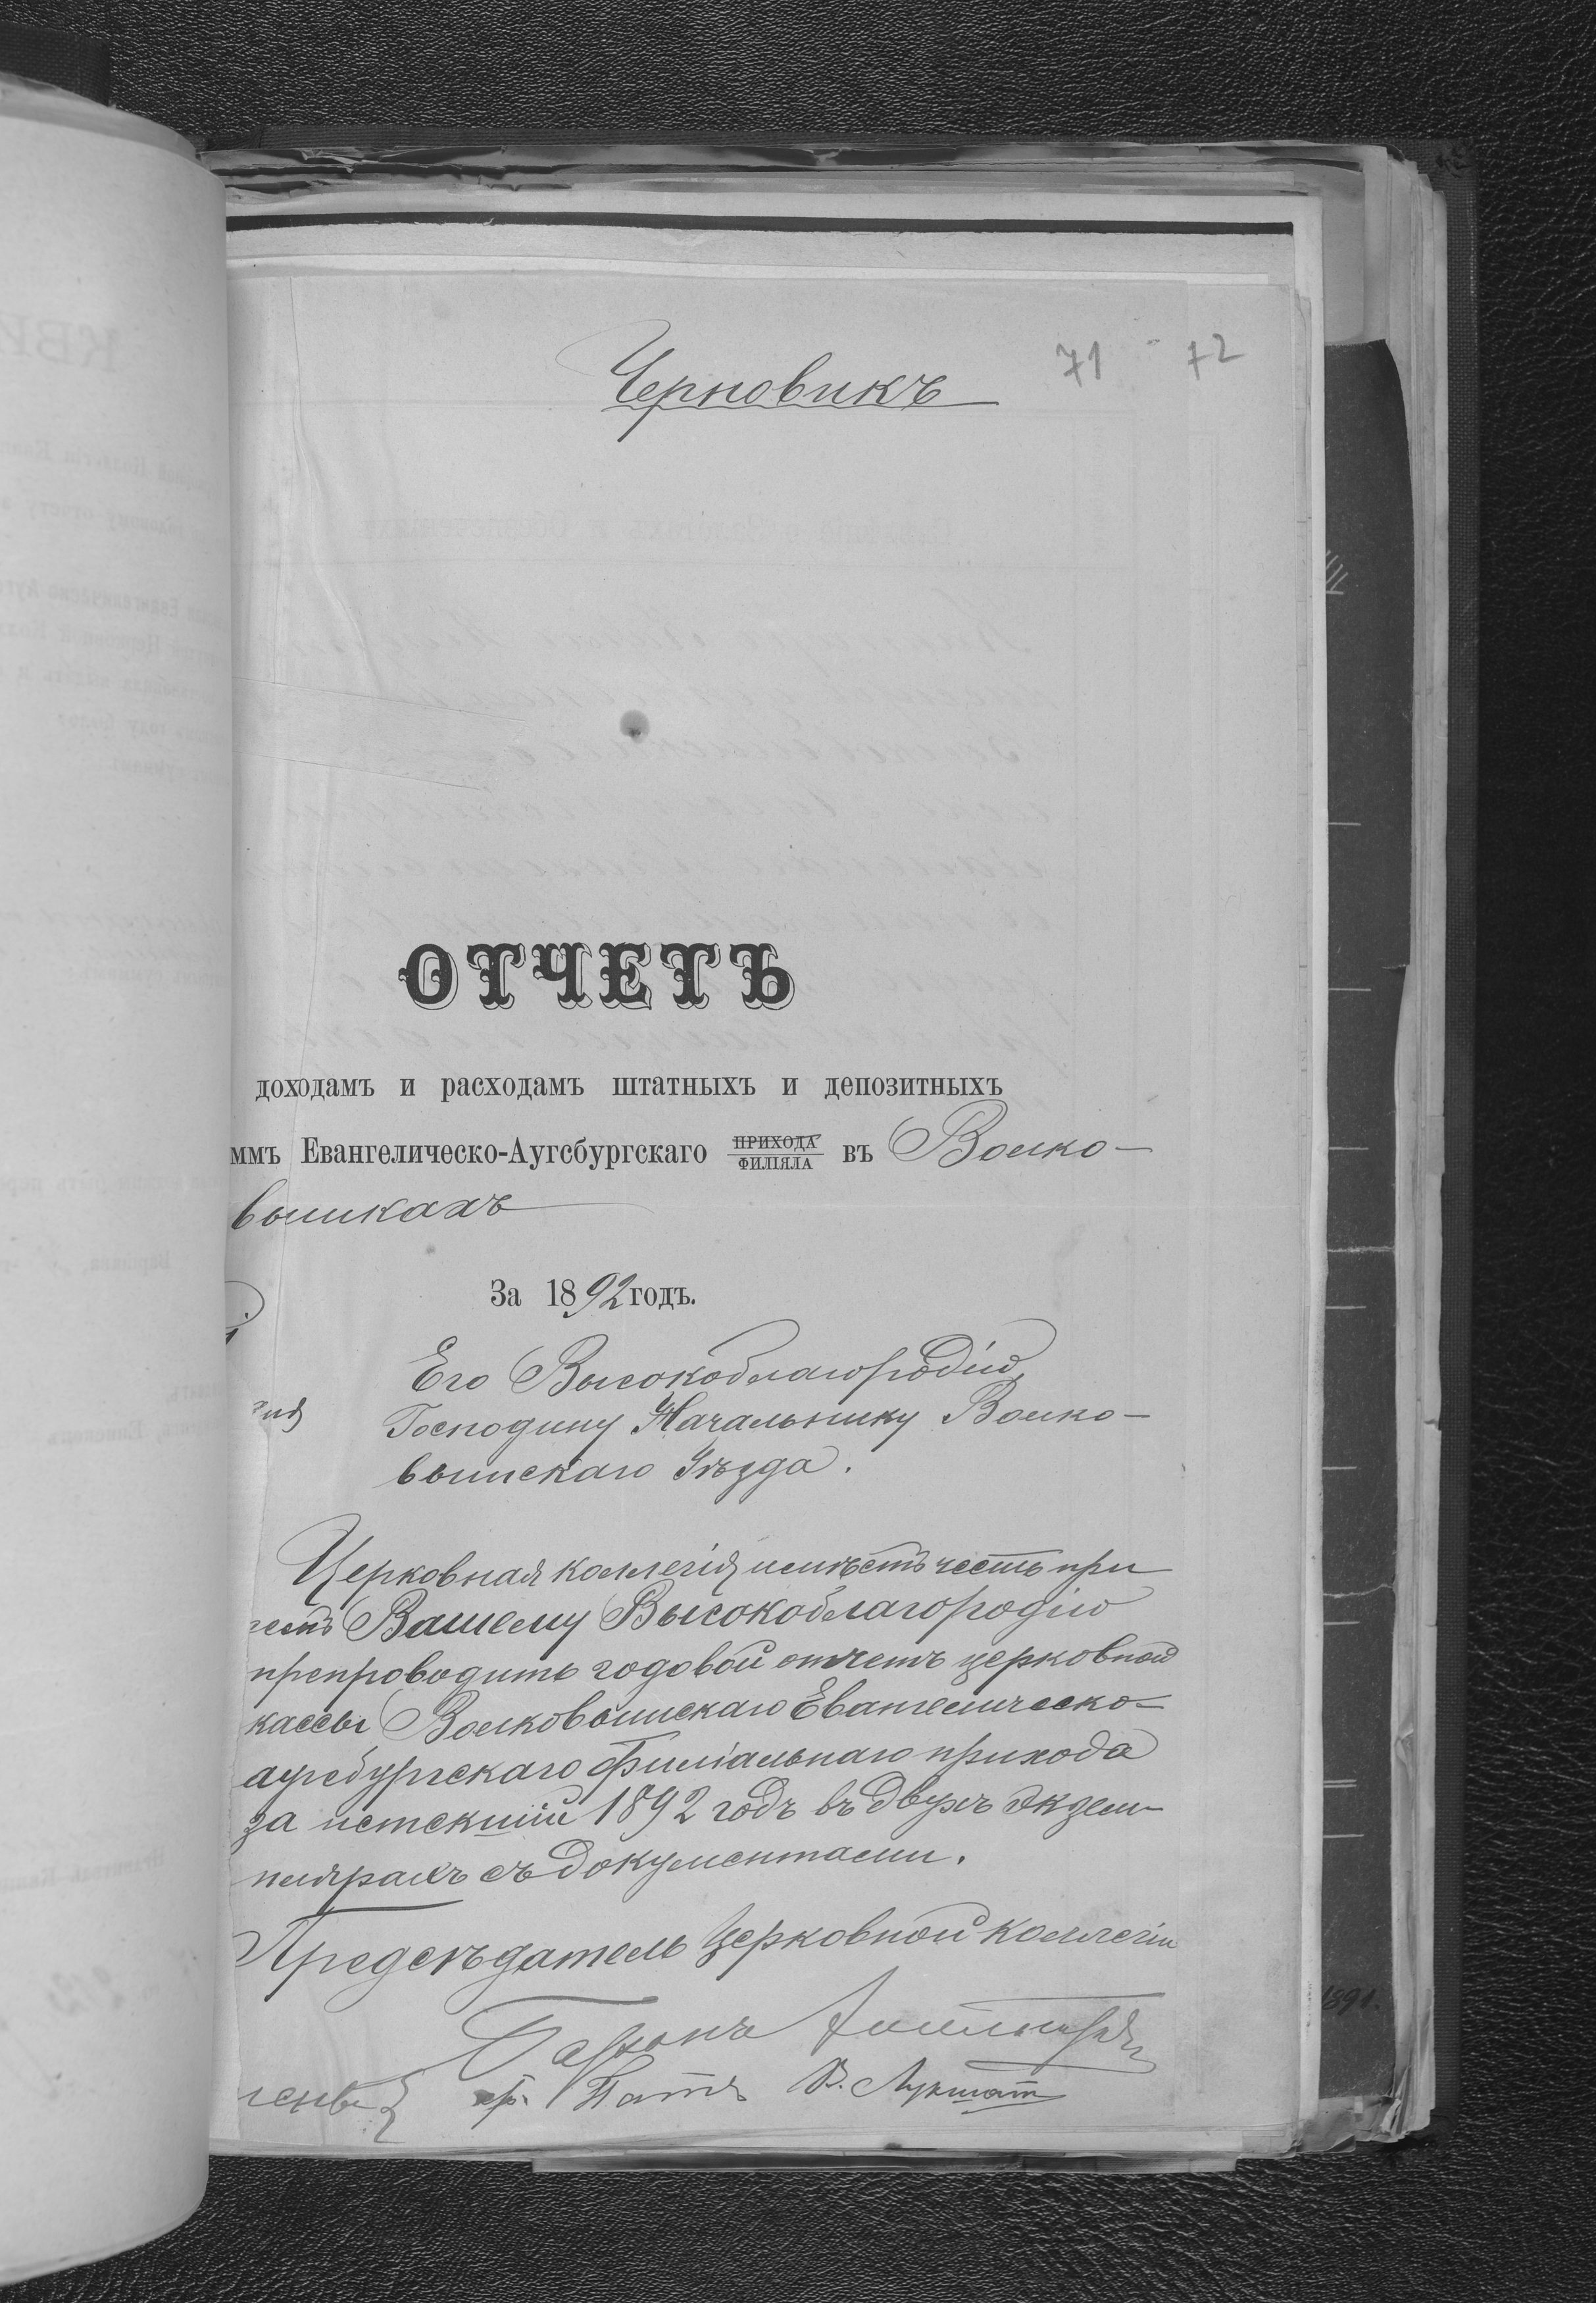 Черновикъ
71 72
ОТЧЕТЪ
доходамъ и расходамъ штатныхъ и депозитныхъ
ммъ Евангелическо-Аугсбургскаго ПРИХОДА ФИЛІЯЛА въ Волко-
вышкахъ
За 1892 годъ.
Его Высокоблагородію,
Господину Начальнику Волко-
вышскаго Уѣзда.
Церковная коллегія имѣетъ честь при
семъ Вашему Высокоблагородію
препроводить годовой отчетъ церковной
кассы Волковышскаго Евангелическо-
аугсбургскаго Филіальнаго прихода
за истекшій 1892 годъ въ двухъ экзем-
плярахъ съ документами.
Предсѣдатель Церковной Коллегіи
Баронъ
1891.